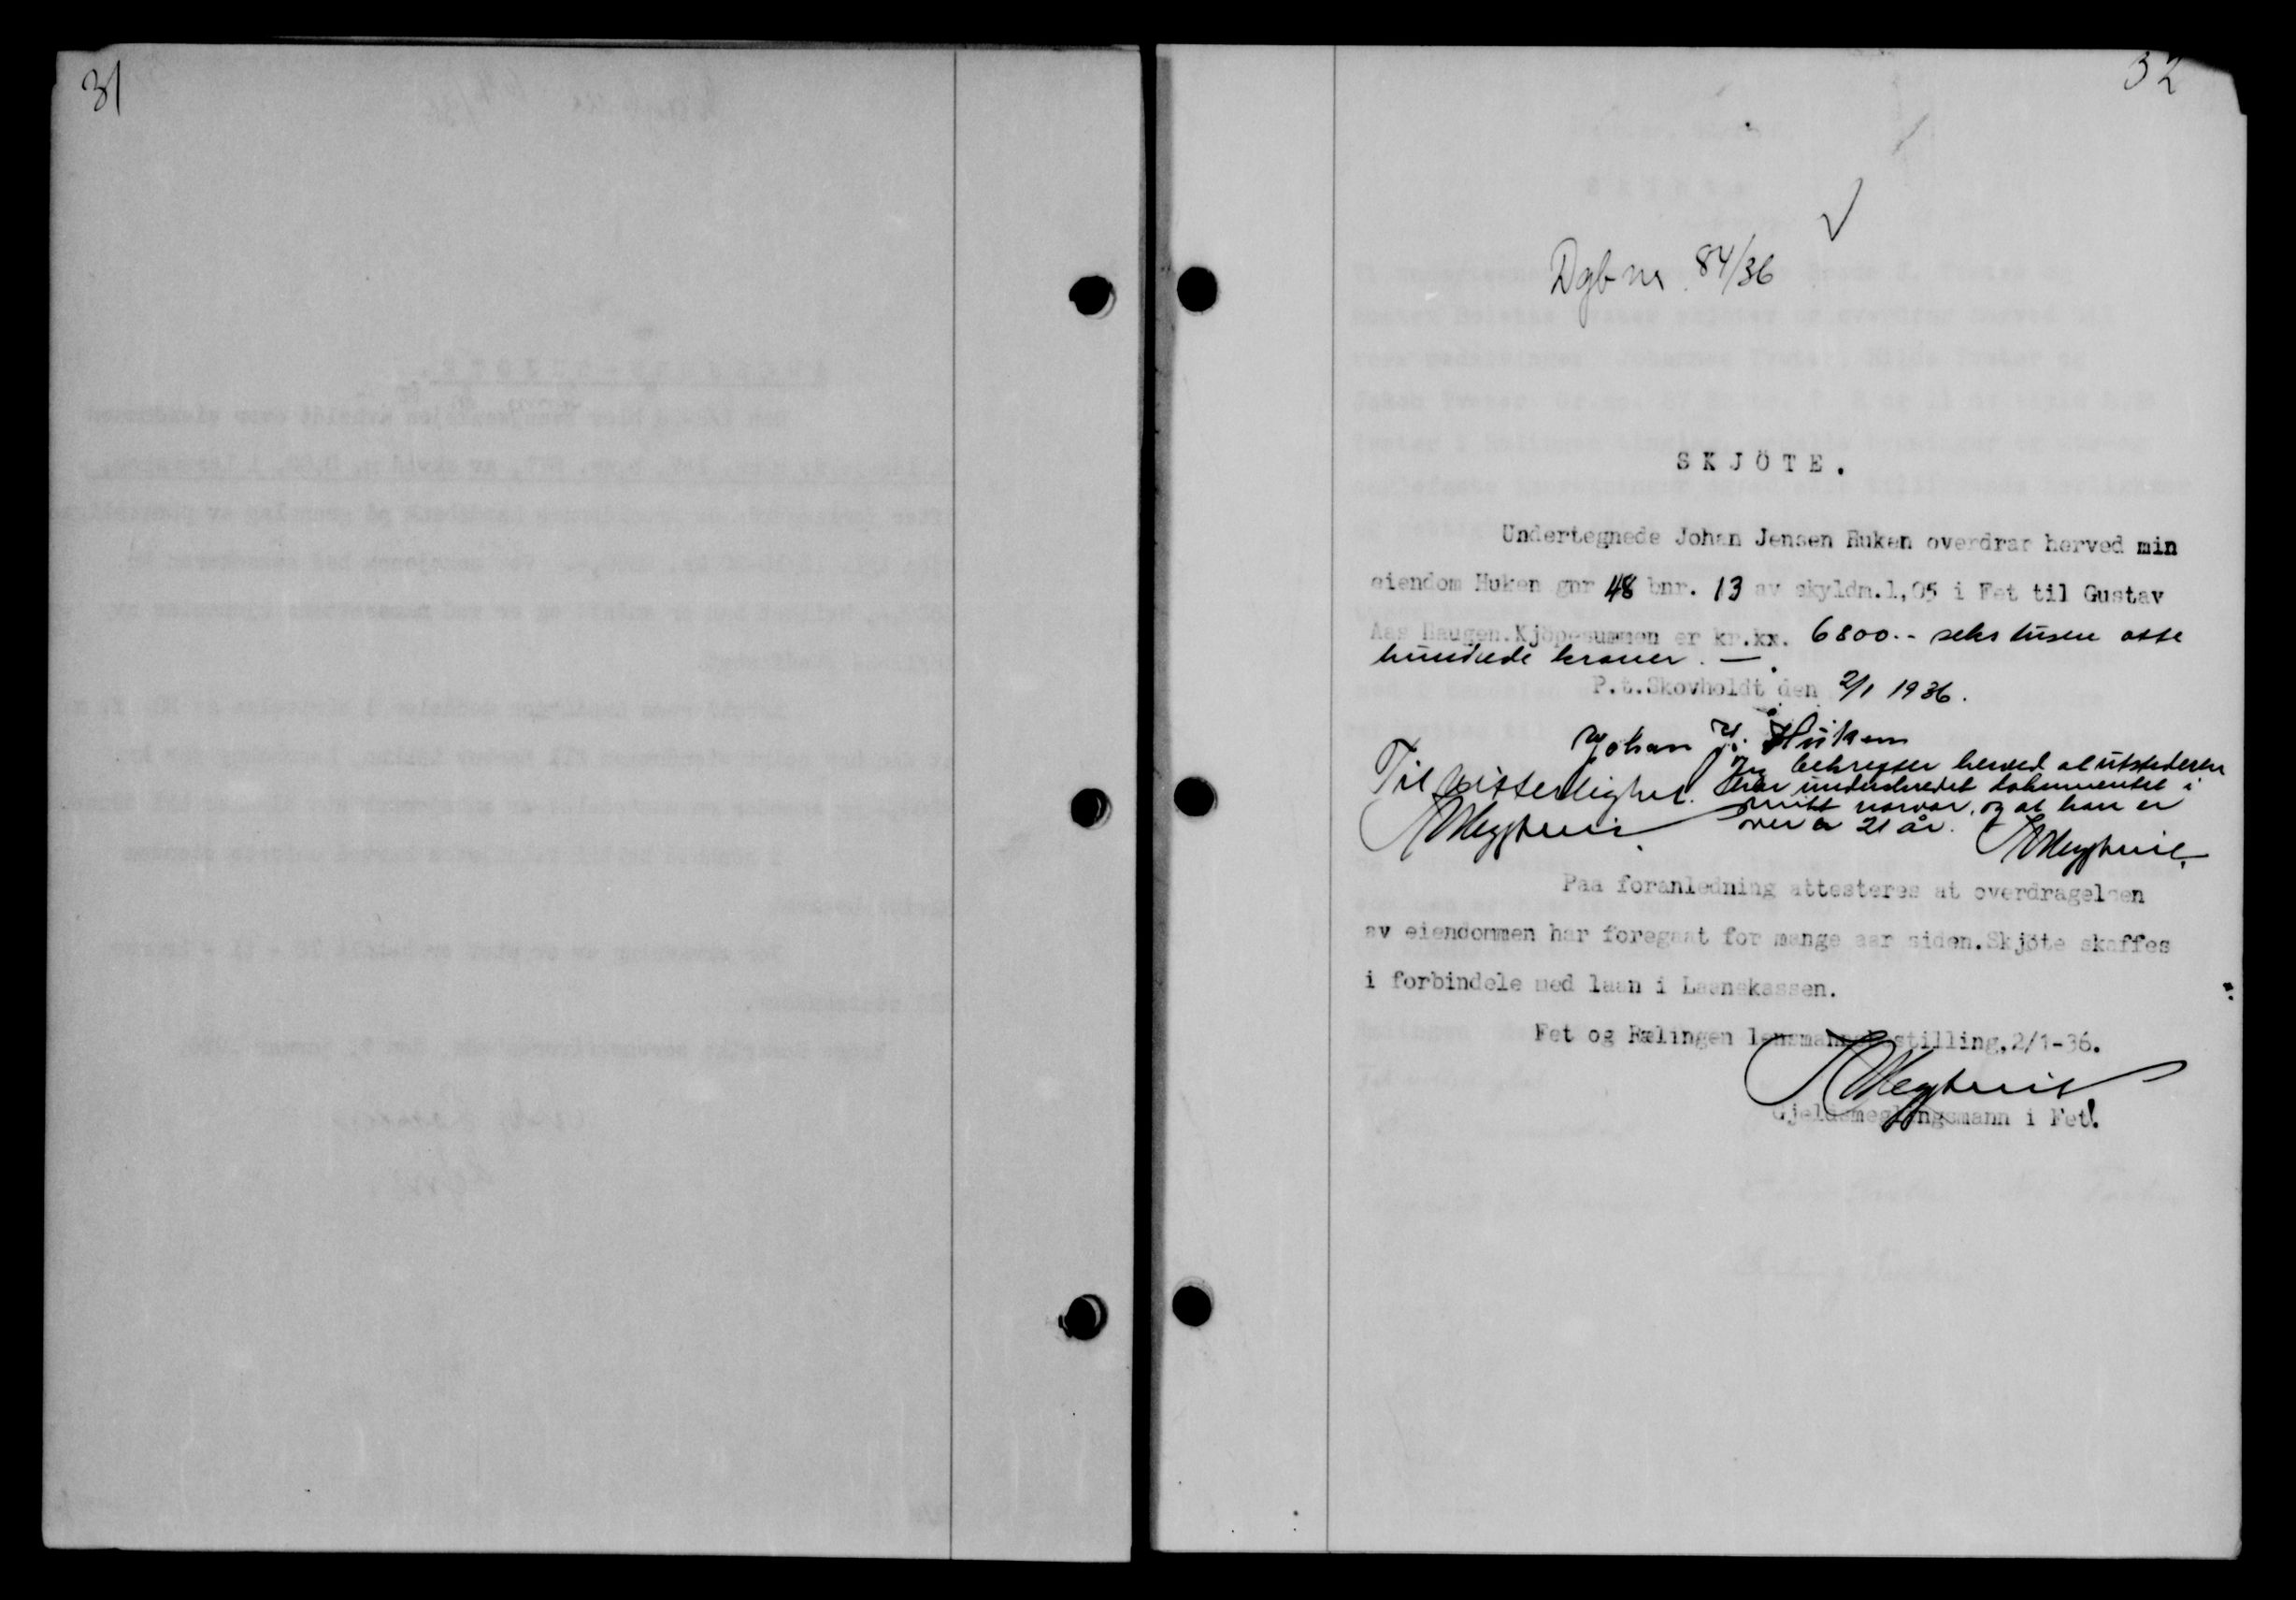 31
32
Dgb nr. 84/36
SKJÖTE.
Undertegnede Johan Jensen Huken overdrar herved min
eiendom Huken gnr 48 bnr. 13 av skyldm.1,05 i Fet til Gustav
Aas Haugen.Kjöpesummen er kr.kx. 6800.- seks tusen otte
hundrede kroner. —
P.t.Skovholdt den 2/1 1936.
Johan J. Huken
Til vitterlighet. Jeg bekrefter herved at utstederen
har underskrevet dokumentet i
mitt nærvær, og at han er
over 21 år.
Paa foranledning attesteres at overdragelsen
av eiendommen har foregaat for mange aar siden.Skjöte skaffes
i forbindele med laan i Laanekassen.
Fet og Rælingen lensmannsstilling,2/1-36.
Gjeldsmeglingsmann i Fet.